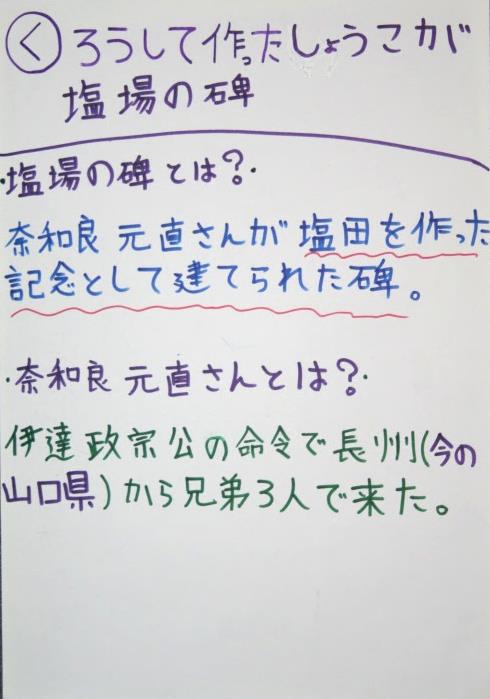 くろうして作ったしょうこが
塩場の碑
・塩場の碑とは？・
奈和良 元直さんが塩田を作った
記念として建てられた碑。
・奈和良 元直さんとは？・
伊達政宗公の命令で長州(今の
山口県)から兄弟3人で来た。